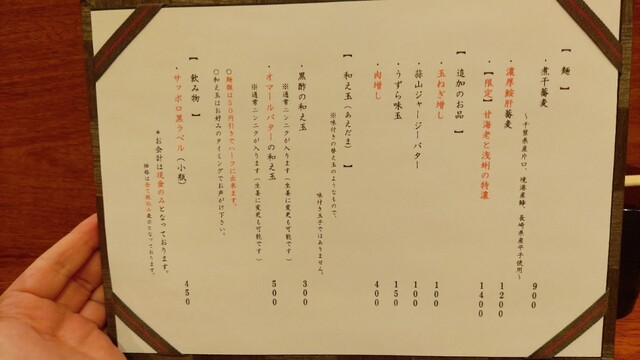 【 麺 】
・煮干蕎麦 900
～千葉県産片口、境港産鯵、長崎県産平子使用～
・濃厚鮟肝蕎麦 1200
・【限定】甘海老と浅蜊の特濃 1400
【 追加のお品 】
・玉ねぎ増し 100
・蒜山ジャージーバター 100
・うずら味玉 150
・肉増し 400
【 和え玉(あえだま) 】
※味付きの替え玉のようなもので、
味付き玉子ではありません。
・黒酢の和え玉 300
※通常ニンニクが入ります(生姜に変更も可能です)
・オマールバターの和え玉 500
※通常ニンニクが入ります(生姜に変更も可能です)
○麺類は50円引きでハーフに出来ます。
○和え玉はお好みのタイミングでお声がけ下さい。
【 飲み物 】
・サッポロ黒ラベル(小瓶) 450
*お会計は現金のみとなっております。
価格は全て税込み表示となっております。